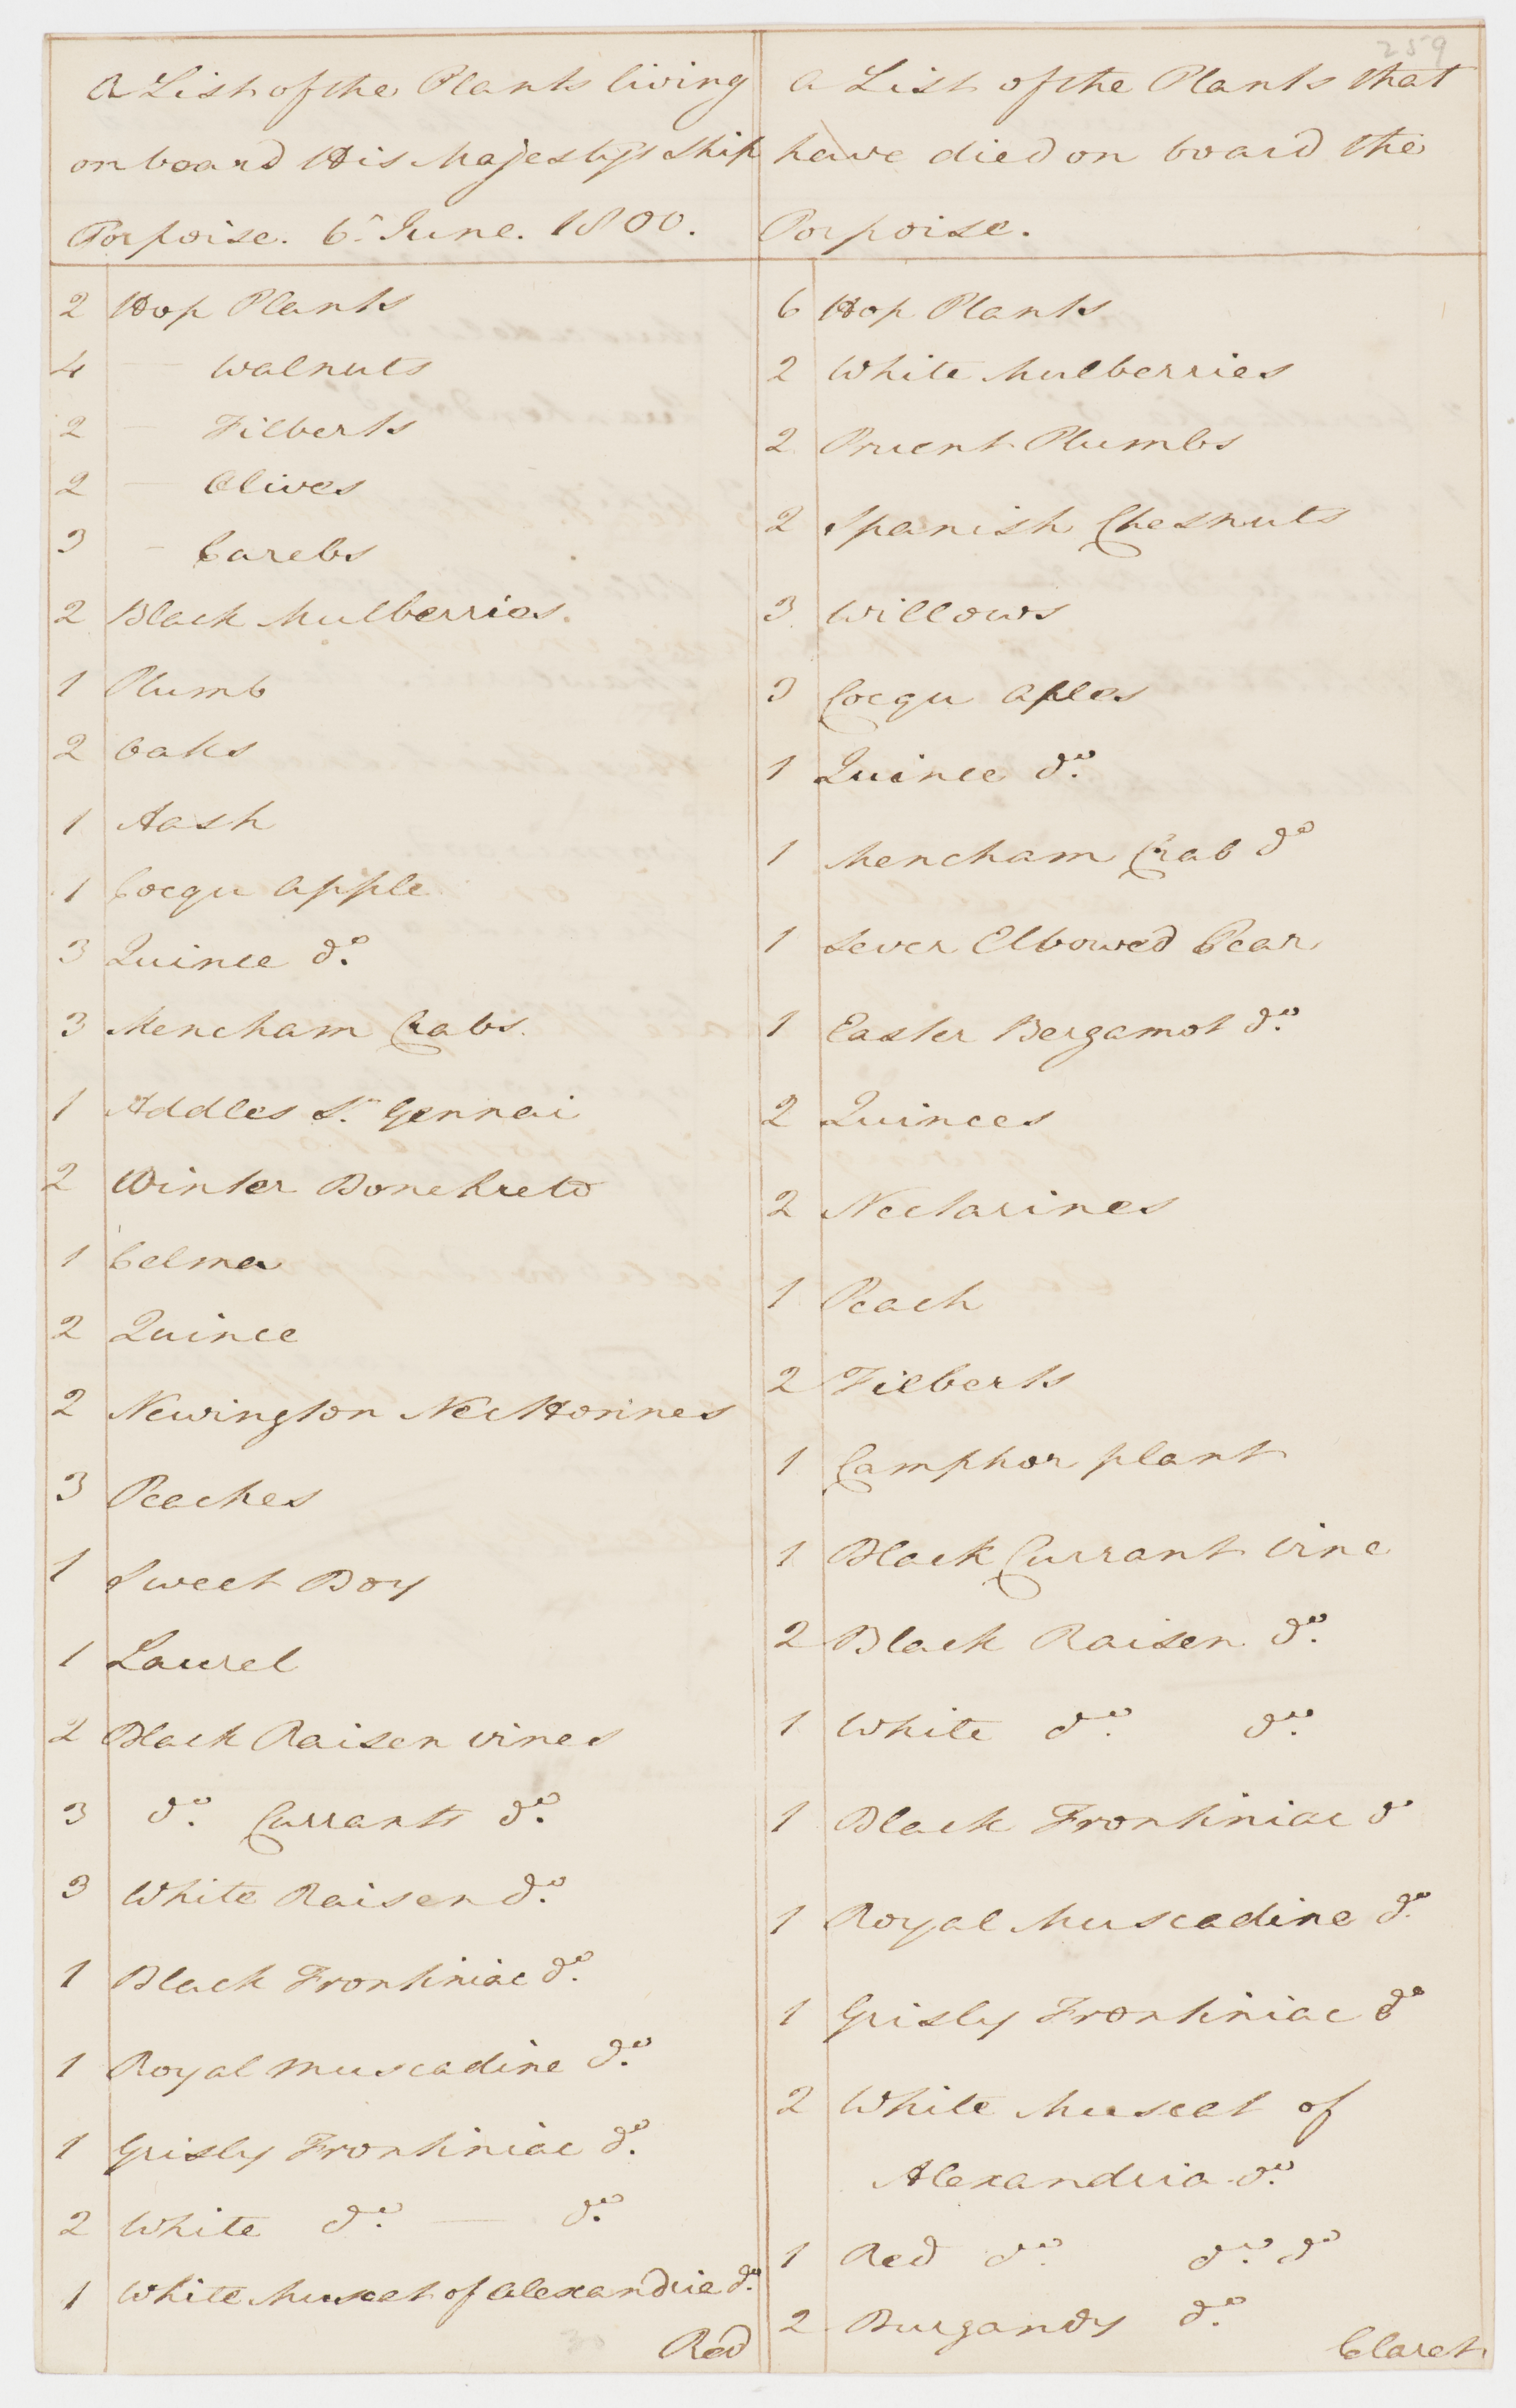 259
A List of the Plants living
on board His Majestys Ship
Porpoise. 6th June. 1800.
2 Hop Plants
4 — Walnuts
2 — Filberts
2 — Olives
3 - Carebs
2 Black Mulberries.
1 Plumb
2 Oaks
1 Aash
1 Cocqu Apple
3 Quince do.
3 Mencham Crabs.
1 Addles St. Gennai
2 Winter Bonchreto
1 Colmar
2 Quince
2 Newington Necttorines
3 Peaches
1 Sweet Boy
1 Laurel
2 Black Raisen vines
3 do. Currants do.
3 White Raisen do.
1 Black Frontiniac do.
1 Royal muscadine do.
1 Grisly Frontiniac do.
2 White do. — do.
1 White Muscat of Alexandria do.
Red
A List of the Plants that
have died on board the
Porpoise.
6 Hop Plants
2 White Mulberries
2 Pruent Plumbs
2 Spanish Chesnuts
3 Willows
3 Cocqu Aples
1 Quince do.
1 Mencham Crab do
1 Sever Elbowed Pear
1 Easter Bergamot do.
2 Quinces
2 Nectarines
1 Peach
2 Filberts
1 Camphor plant
1 Black Currant vine
2 Black Raisen do.
1 White do. do.
1 Black Frontiniac do
1 Royal Muscadine do.
1 Grisly Frontiniac do
2 White Muscat of
Alexandria do.
1 Red do. do. do
2 Burgandy do.
Claret